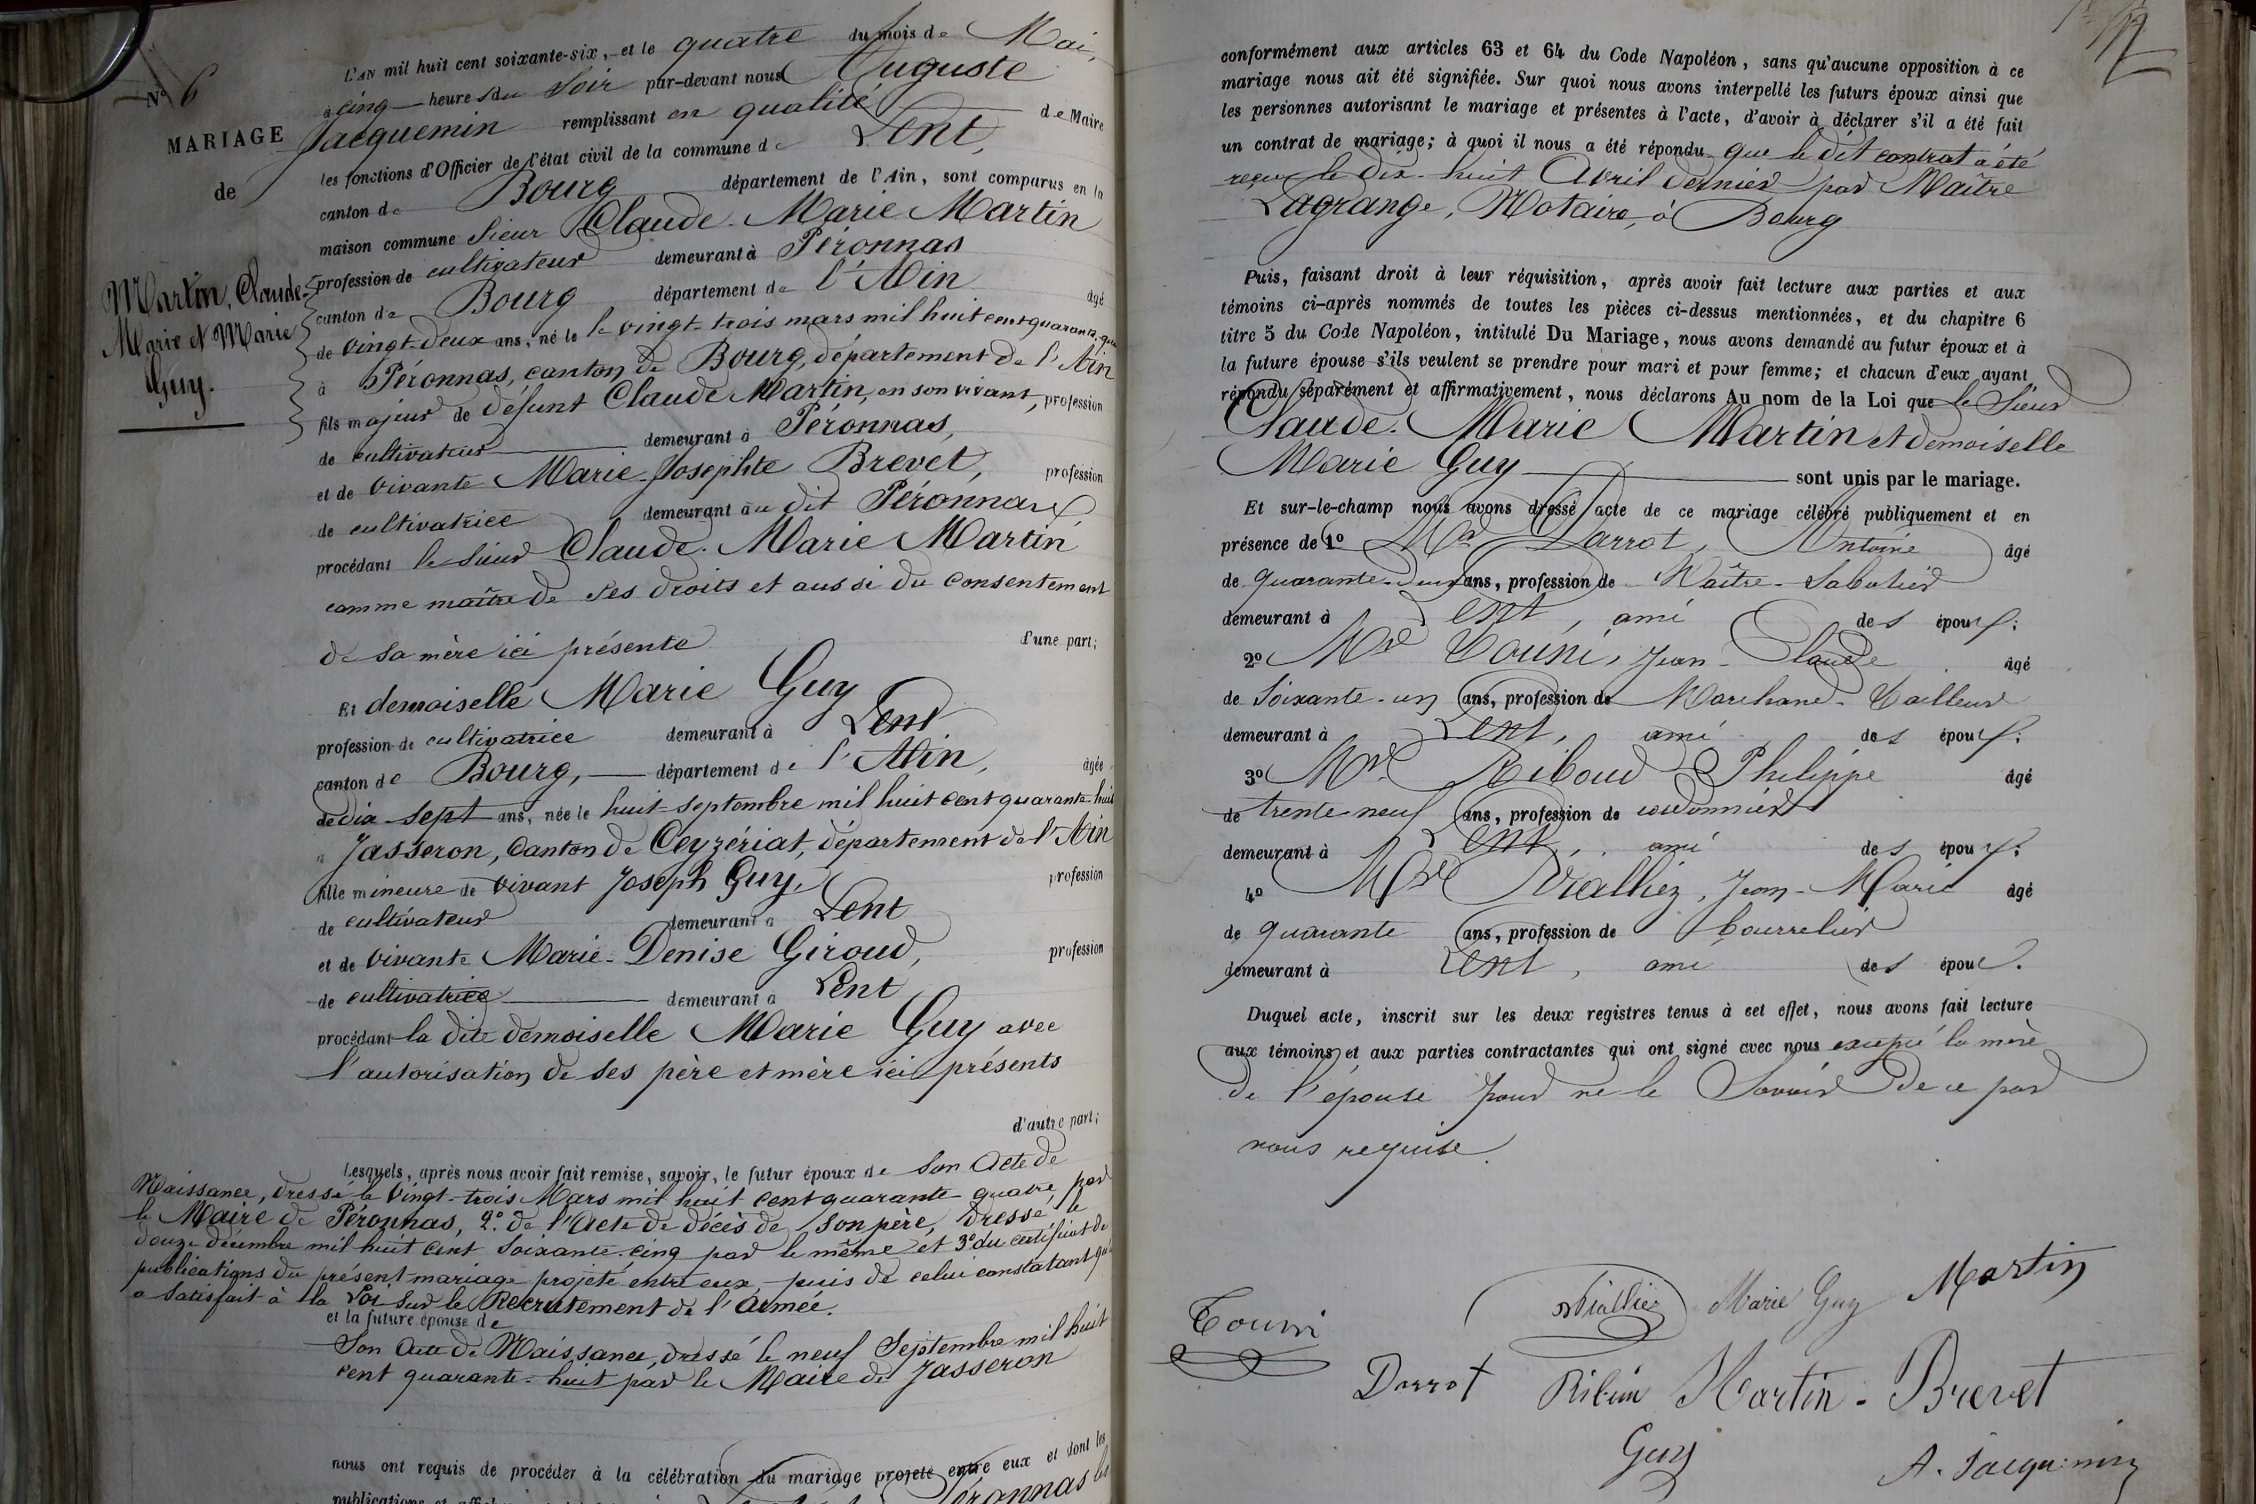 N° 6
MARIAGE
de
Martin, Claude-
Marie et Marie
Guy.
L'AN mil huit cent soixante-six, et le quatre du mois de Mai,
à cinq heures du Soir par-devant nous Auguste
Jacquemin remplissant en qualité de Maire
les fonctions d'Officier de l'état civil de la commune de Lent,
canton de Bourg département de l'Ain, sont comparus en la
maison commune Sieur Claude-Marie Martin
profession de cultivateur demeurant à Péronnas
canton de Bourg département de l'Ain âgé
de vingt-deux ans, né le le vingt-trois mars mil huit cent quarante
à Péronnas, canton de Bourg, département de l'Ain
fils majeur de défunt Claude Martin, en son vivant, profession
de cultivateur demeurant à Péronnas,
et de vivante Marie-Josephte Brevet, profession
de cultivatrice demeurant au dit Péronnas
procédant le sieur Claude-Marie Martin
comme maître de ses droits et aussi du consentement
de sa mère ici présente d'une part;
Et demoiselle Marie Guy
profession de cultivatrice demeurant à Lent
canton de Bourg, département de l'Ain, âgée
de dix-sept ans, née le huit septembre mil huit cent quarante-huit
à Jasseron, Canton de Ceyzériat, département de l'Ain
fille mineure de vivant Joseph Guy, profession
de cultivateur demeurant à Lent
et de vivante Marie-Denise Giroud, profession
de cultivatrice demeurant à Lent
procédant la dite demoiselle Marie Guy avec
l'autorisation de ses père et mère ici présents
d'autre part;
Lesquels, après nous avoir fait remise, savoir, le futur époux de son Acte de
Naissance, dressé le vingt-trois Mars mil huit cent quarante-quatre, par
le Maire de Péronnas, 2° de l'Acte de décès de son père, dressé le
douze décembre mil huit cent soixante-cinq par le même et 3° du certificat de
publications du présent mariage projeté entre eux, puis de celui constatant qu'il
a satisfait à la Loi sur le Recrutement de l'Armée.
et la future épouse de
Son Acte de Naissance, dressé le neuf Septembre mil huit
cent quarante-huit par le Maire de Jasseron
nous ont requis de procéder à la célébration du mariage projeté entre eux et dont les
publications Péronnas les
conformément aux articles 63 et 64 du Code Napoléon, sans qu'aucune opposition à ce
mariage nous ait été signifiée. Sur quoi nous avons interpellé les futurs époux ainsi que
les personnes autorisant le mariage et présentes à l'acte, d'avoir à déclarer s'il a été fait
un contrat de mariage; à quoi il nous a été répondu que le dit contrat a été
reçu le dix-huit Avril dernier par Maître
Lagrange, Notaire, à Bourg
Puis, faisant droit à leur réquisition, après avoir fait lecture aux parties et aux
témoins ci-après nommés de toutes les pièces ci-dessus mentionnées, et du chapitre 6
titre 5 du Code Napoléon, intitulé Du Mariage, nous avons demandé au futur époux et à
la future épouse s'ils veulent se prendre pour mari et pour femme; et chacun d'eux ayant
répondu séparément et affirmativement, nous déclarons Au nom de la Loi que le Sieur
Claude-Marie Martin et demoiselle
Marie Guy sont unis par le mariage.
Et sur-le-champ nous avons dressé acte de ce mariage célébré publiquement et en
présence de 1° Mr Darrot, Antoine âgé
de quarante-deux ans, profession de Maître-Sabotier
demeurant à Lent, ami des époux;
2° Mr Touni, Jean-Claude âgé
de soixante-un ans, profession de Marchand-Tailleur
demeurant à Lent, ami des époux;
3° Mr Riboud Philippe âgé
de trente neuf ans, profession de cordonnier
demeurant à Lent, ami des époux;
4° Mr Vialliez, Jean-Marie âgé
de quarante ans, profession de bourrelier
demeurant à Lent, ami des époux.
Duquel acte, inscrit sur les deux registres tenus à cet effet, nous avons fait lecture
aux témoins et aux parties contractantes qui ont signé avec nous excepté la mère
de l'épouse pour ne le Savoir de ce par
nous requise.
Vialliez Marie Guy Martin
Touni
Darrot Martin-Brevet
Guy A. Jacquemin